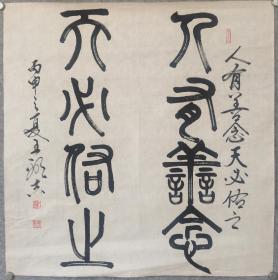 人有善念天必佑之
人有善念
天必佑之
丙申之夏王